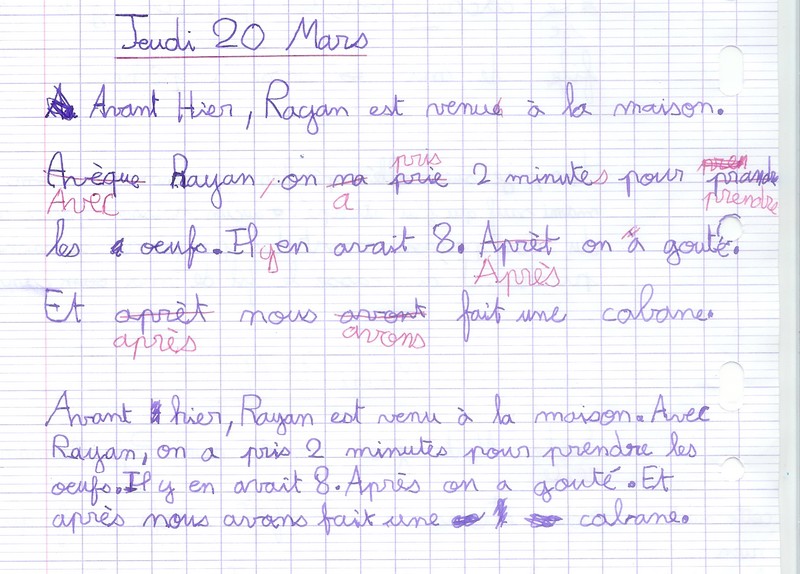 Jeudi 20 Mars
Avant Hier, Rayan est venus à la maison.
pris
Avèque Rayan, on ma prie 2 minutes pour prande
Avec a prendre
les oeufs. Il y en avait 8. Aprèt on à gouté.
Après
Et aprèt nous avont fait une cabane.
après avons
Avant hier, Rayan est venu à la maison. Avec
Rayan, on a pris 2 minutes pour prendre les
oeufs. Il y en avait 8. Après on a gouté. Et
après nous avons fait une cabane.